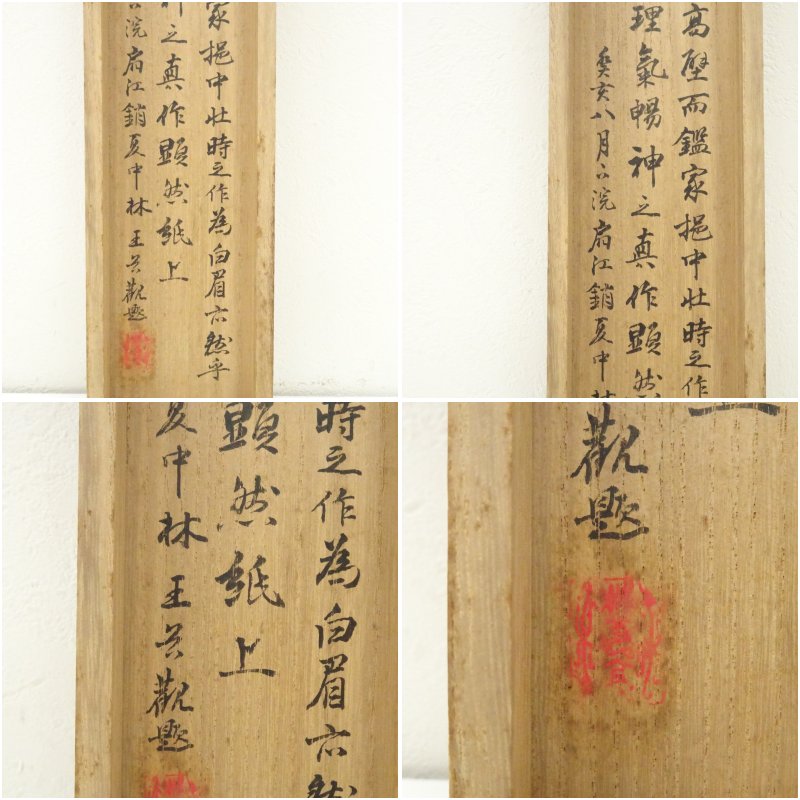 家挹中壮時之作為白眉亦然乎
神之真作顕然紙上
浣扇江銷夏中林王 觀題
高壁而鑑家挹中壮時之作
理氣暢神之真作顕然
癸亥八月 浣扇江銷夏中林
時之作為白眉亦然
顕然紙上
夏中林王 觀題
觀題